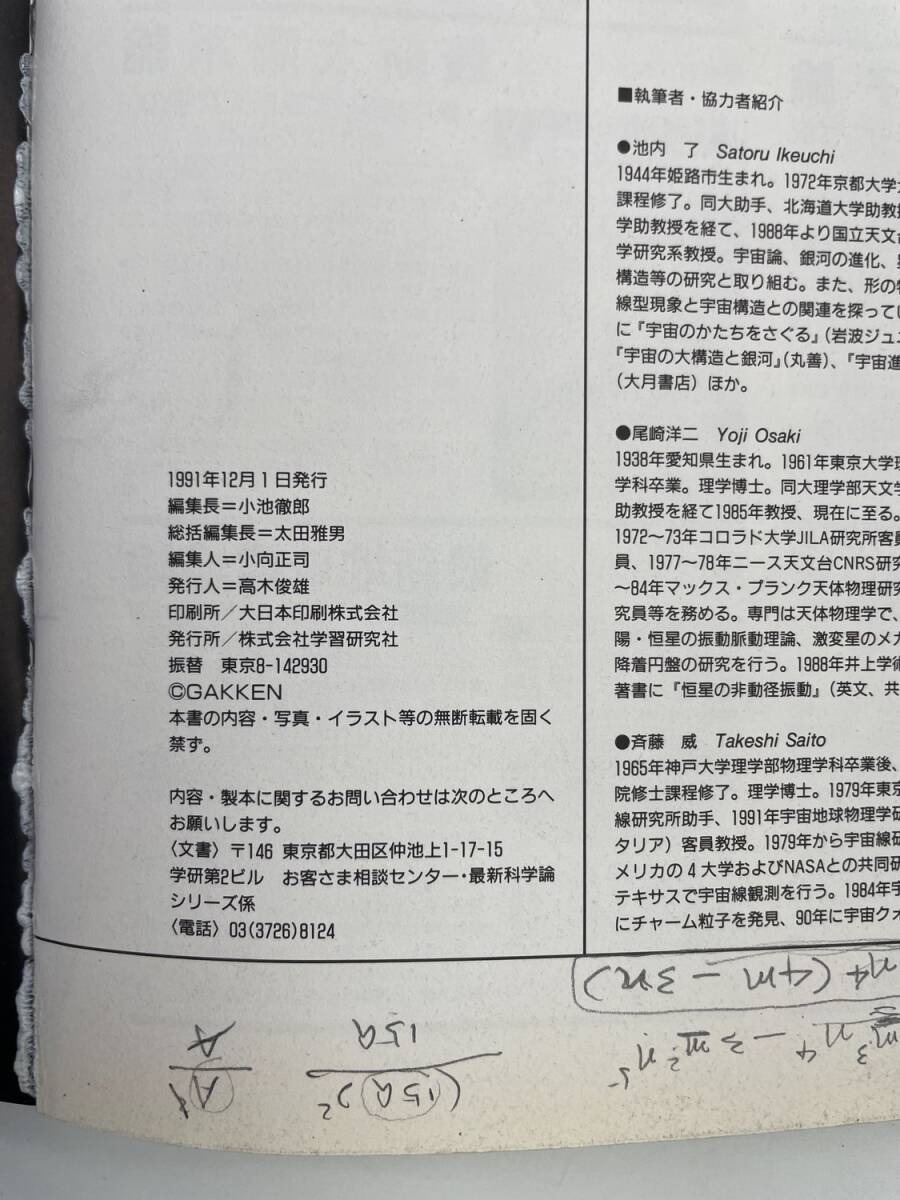 1991年12月1日発行
編集長＝小池徹郎
総括編集長＝太田雅男
編集人＝小向正司
発行人＝高木俊雄
印刷所／大日本印刷株式会社
発行所／株式会社学習研究社
振替　東京8-142930
©GAKKEN
本書の内容・写真・イラスト等の無断転載を固く
禁ず。
内容・製本に関するお問い合わせは次のところへ
お願いします。
〈文書〉〒146 東京都大田区仲池上1-17-15
学研第2ビル　お客さま相談センター・最新科学論
シリーズ係
〈電話〉03(3726)8124
■執筆者・協力者紹介
●池内　了　Satoru Ikeuchi
1944年姫路市生まれ。1972年京都大学
課程修了。同大助手、北海道大学助教授
学助教授を経て、1988年より国立天文台
学研究系教授。宇宙論、銀河の進化、
構造等の研究と取り組む。また、形の
線型現象と宇宙構造との関連を探ってい
に『宇宙のかたちをさぐる』（岩波ジュニ
『宇宙の大構造と銀河』（丸善）、『宇宙進
（大月書店）ほか。
●尾崎洋二　Yoji Osaki
1938年愛知県生まれ。1961年東京大学理
学科卒業。理学博士。同大理学部天文学
助教授を経て1985年教授、現在に至る。
1972〜73年コロラド大学JILA研究所客員
員、1977〜78年ニース天文台CNRS研究
〜84年マックス・プランク天体物理研究
究員等を務める。専門は天体物理学で、
陽・恒星の振動脈動理論、激変星のメカ
降着円盤の研究を行う。1988年井上学術
著書に『恒星の非動径振動』（英文、共
●斉藤　威　Takeshi Saito
1965年神戸大学理学部物理学科卒業後、
院修士課程修了。理学博士。1979年東京
線研究所助手、1991年宇宙地球物理学研
タリア）客員教授。1979年から宇宙線研
メリカの4大学およびNASAとの共同研
テキサスで宇宙線観測を行う。1984年宇
にチャーム粒子を発見、90年に宇宙クォ
n4 (4m − 3n)
m³n⁴ − 3m²n⁵
(15a)²
15a
A²
A